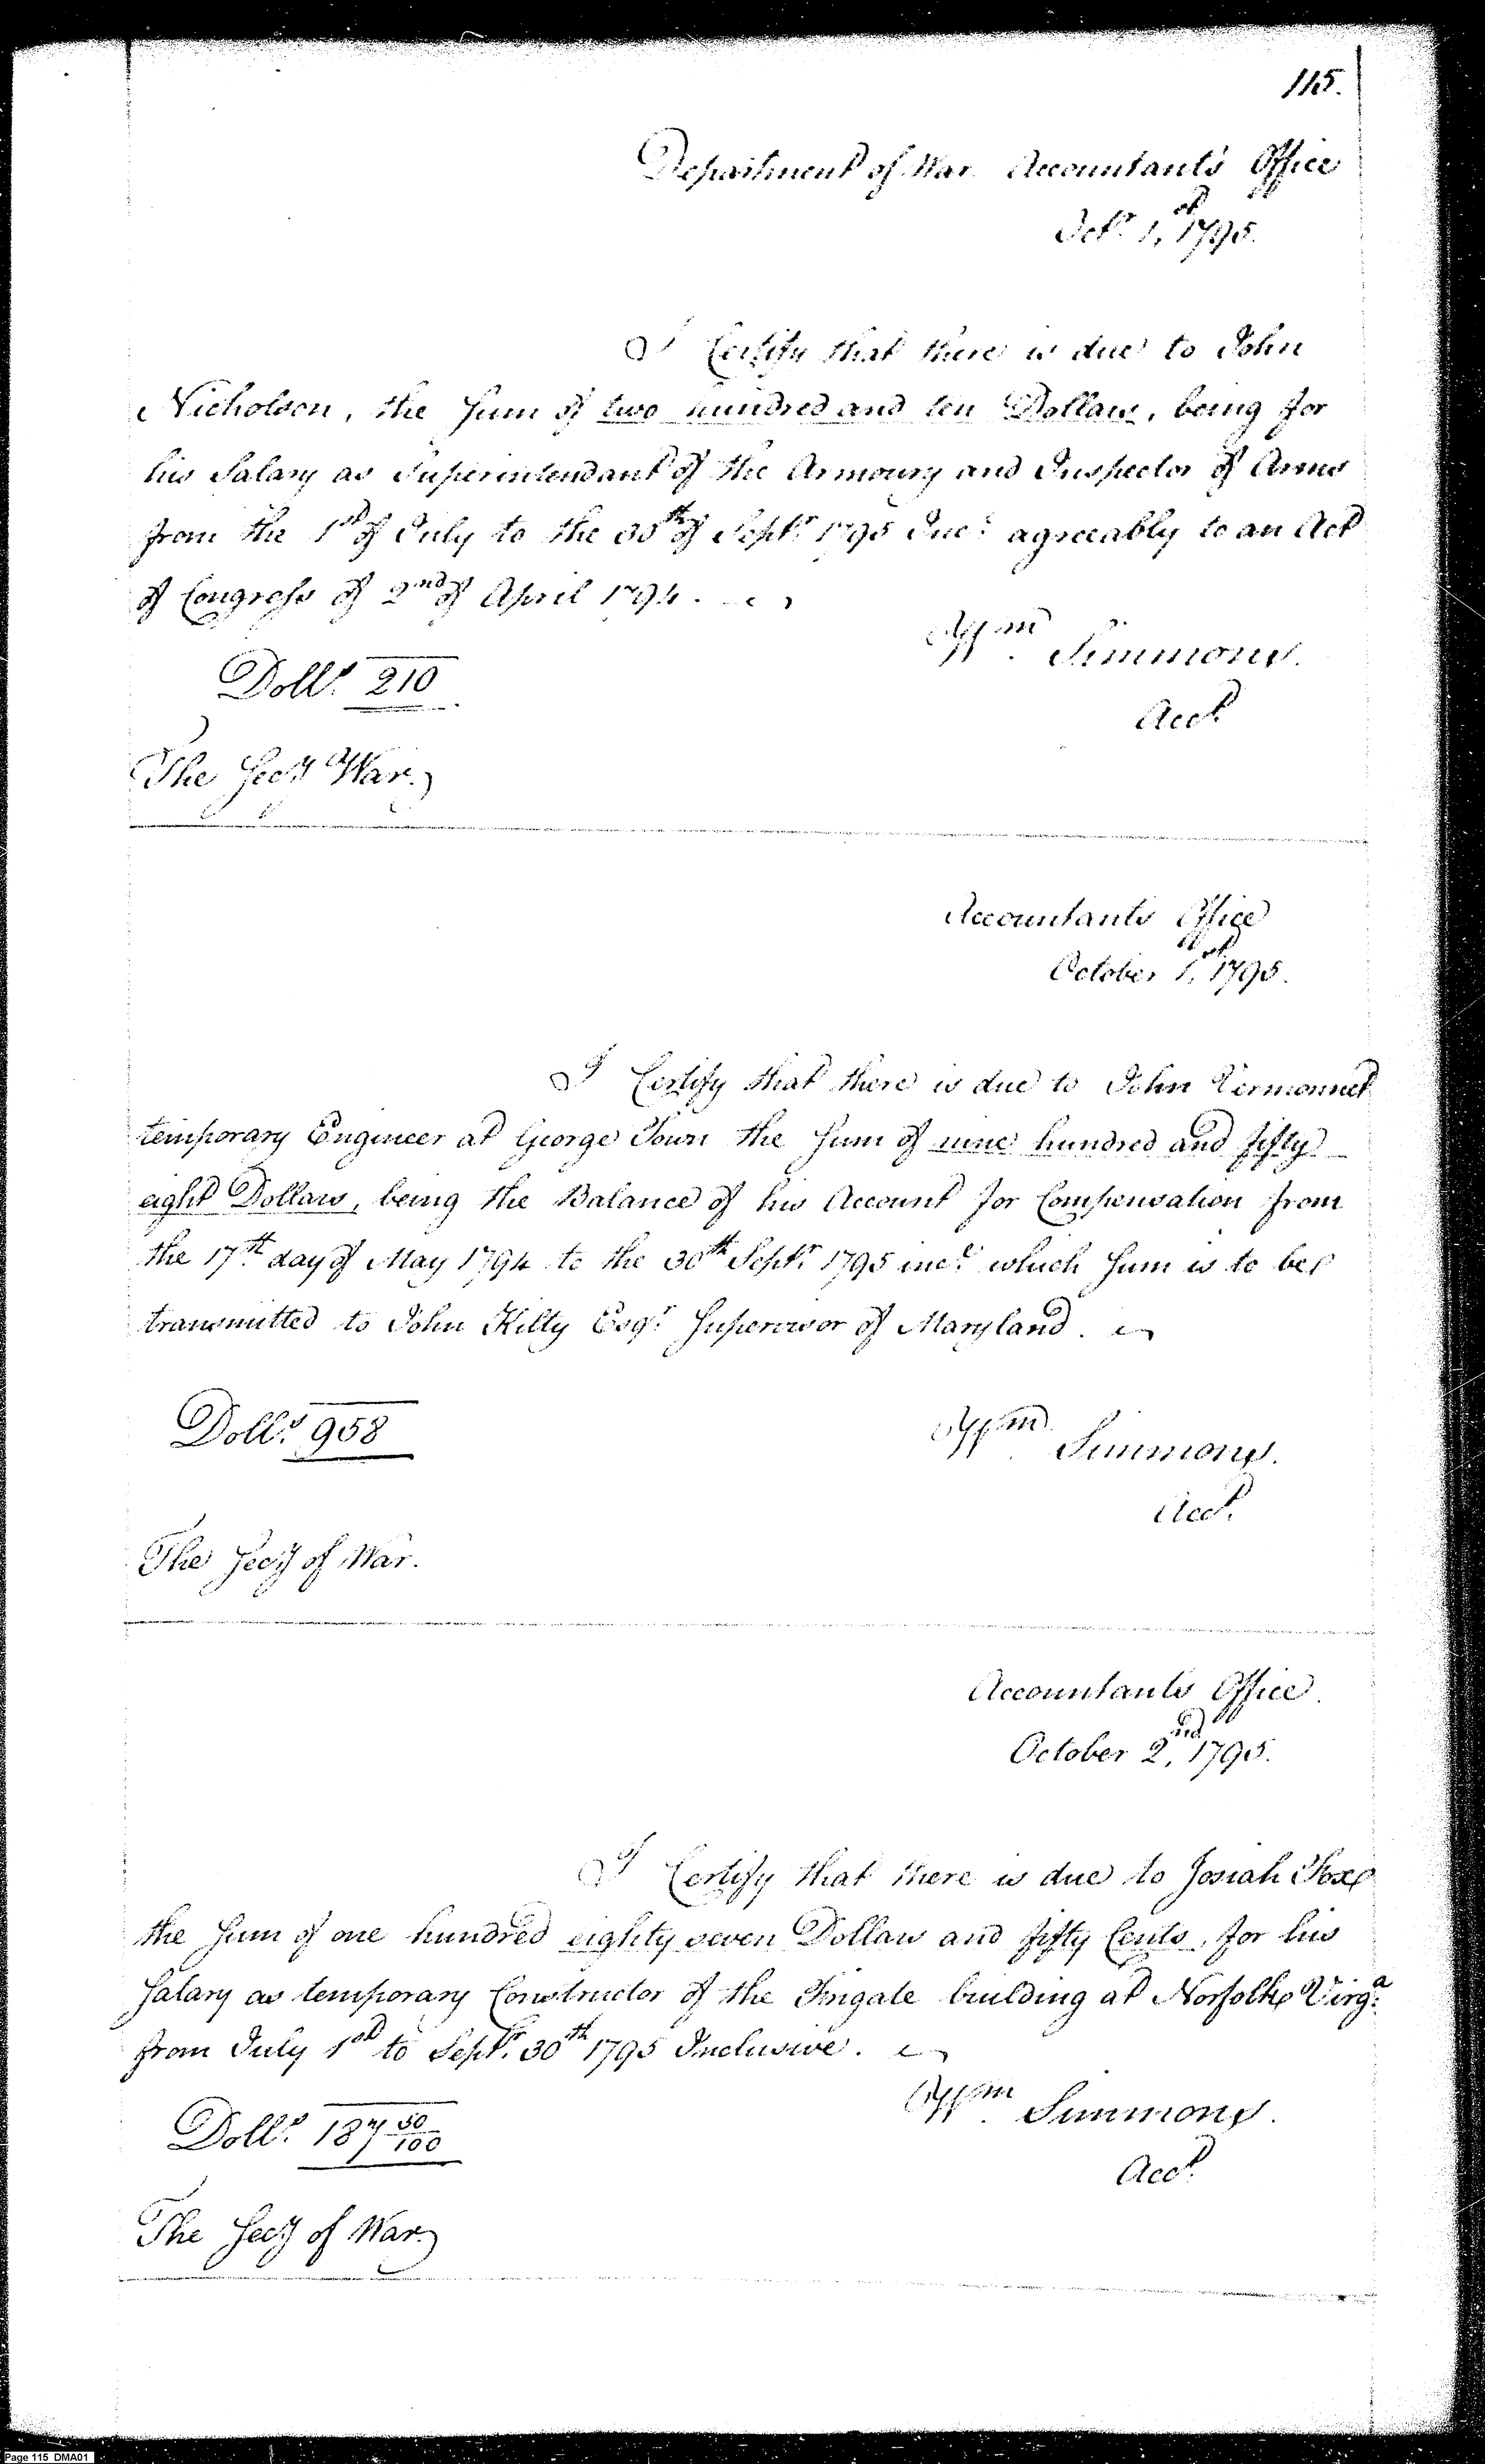 115.
Department of War Accountant's Office
Octr. 1st, 1795.
I Certify that there is due to John
Nicholson, the Sum of two hundred and ten Dollars, being for
his Salary as Superintendant of the Armoury and Inspector of Arms
from the 1st of July to the 30th of Septr. 1795 Incl. agreeably to an Act
of Congress of 2nd of April 1794.
Wm. Simmons.
Dolls. 210
Acct.
The Secy War.
Accountants Office
October 1st, 1795.
I Certify that there is due to John Vermonnet
temporary Engineer at George Town the Sum of nine hundred and fifty
eight Dollars, being the Balance of his Account for Compensation from
the 17th. day of May 1794 to the 30th Septr. 1795 incl. which Sum is to be
transmitted to John Kilty Esqr. Supervisor of Maryland.
Dolls. 958
Wm. Simmons.
Acct.
The Secy of War.
Accountants Office.
October 2nd, 1795.
I Certify that there is due to Josiah Fox
the Sum of one hundred eighty seven Dollars and fifty Cents, for his
Salary as temporary Constructor of the Frigate building at Norfolk Virga.
from July 1st to Septr. 30th 1795 Inclusive.
Wm. Simmons.
Dolls. 187 50/100
Acct.
The Secy of War.
Page 115 DMA01